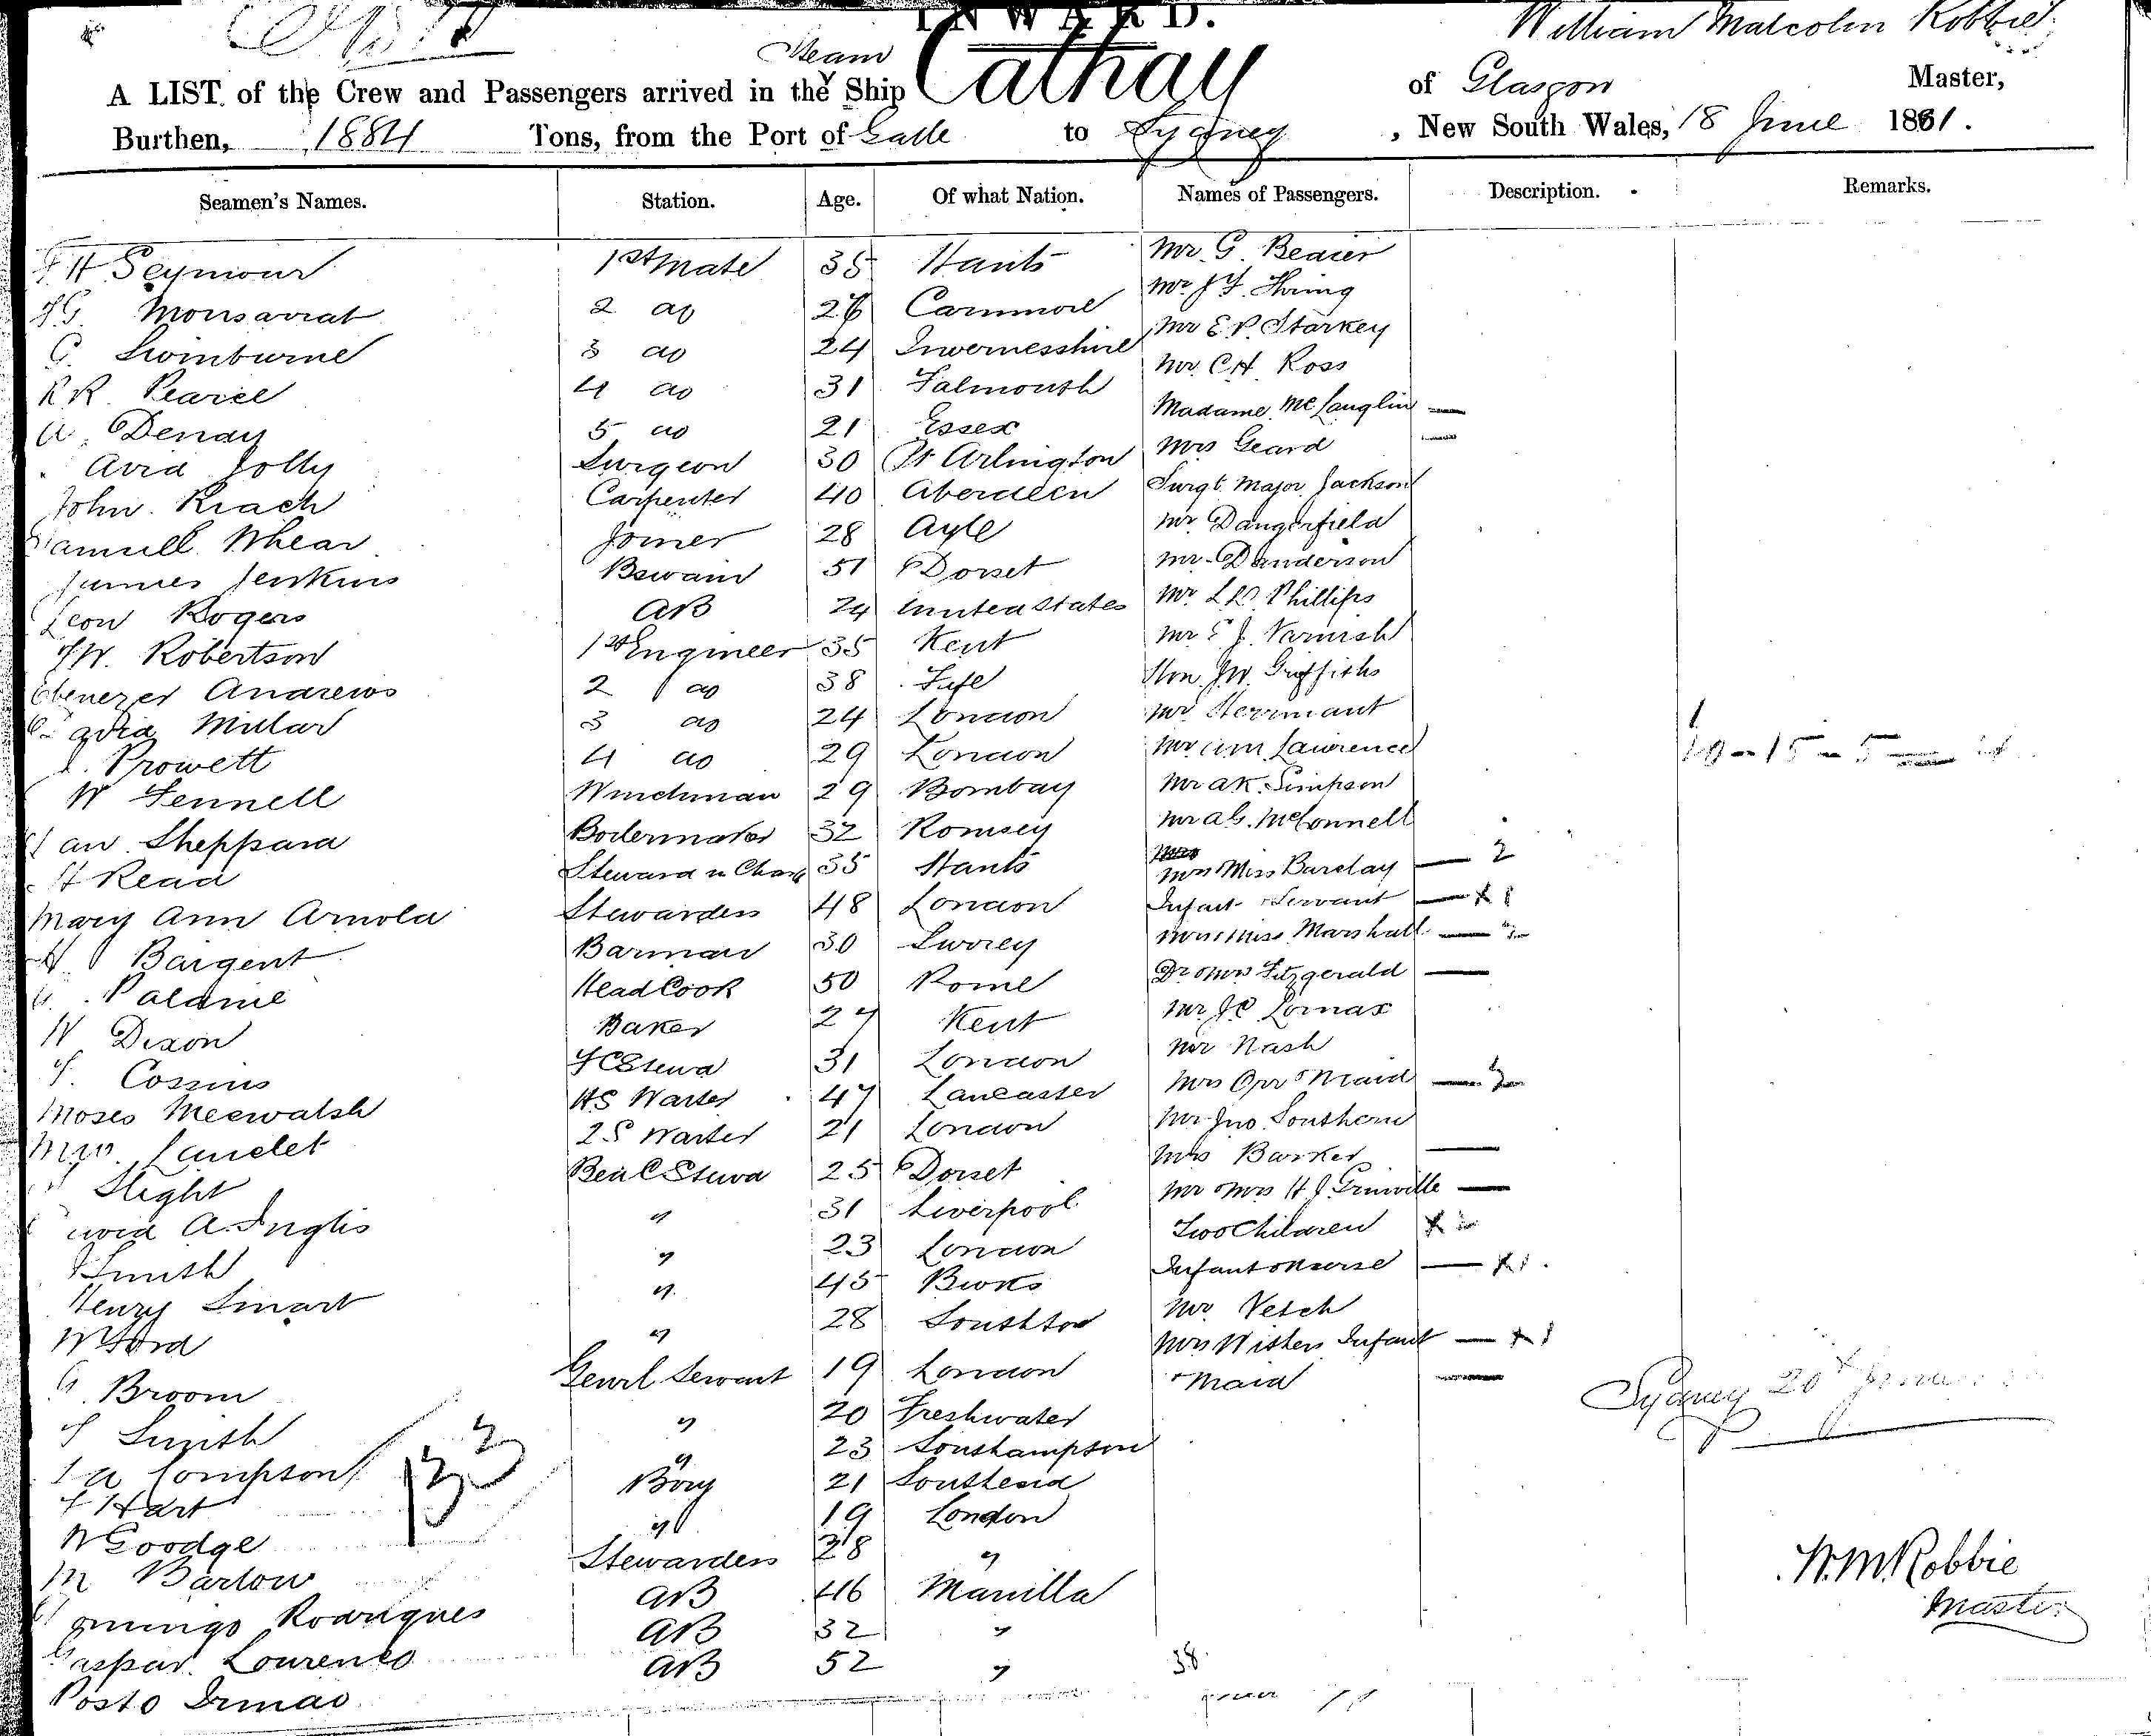 INWARD.
William Malcolm Robbie
Steam
A LIST of the Crew and Passengers arrived in the Ship Cathay of Glasgow Master,
Burthen, 1884 Tons, from the Port of Galle to Sydney, New South Wales, 18 June 1881.
Seamen's Names. Station. Age. Of what Nation. Names of Passengers. Description. Remarks.
H Seymour 1st Mate 35 Hants Mr G. Beaver
Monsarrat 2 do 26 Mr J F.
G. Swinburne 3 do 24 Invernesshire Mr E.P. Starkey
R R. Pearce 4 do 31 Falmouth Mr C H. Ross
A. Denay 5 do 21 Essex Madame McLauglin
Jolly Surgeon 30 St Arlington Mrs Geard
John Riach Carpenter 40 Aberdeen Surgt Major Jackson
Samuell Whear Joiner 28 Ayle Mr Dangerfield
James Jenkins Bswain 51 Dorset Mr Danderson
Leon Rogers AB 24 United States Mr L Phillips
W. Robertson 1st Engineer 35 Kent Mr J. Varnish
Ebenezer Andrews 2 do 38 Fife Hon. J W. Griffiths
Millar 3 do 24 London Mr Herrmant
Prowett 4 do 29 London Mr Lawrence
W Fennell Winchman 29 Bombay Mr A K. Simpson
Sheppard Boilermaker 32 Romsey Mr A G. McConnell
H Read Steward in Charg 35 Hants Mrs Miss Barclay 2
Mary Ann Arnold Stewardess 48 London Infant Servant 1
Bargent Barman 30 Surrey Miss Marshall
Paldrie Head Cook 50 Rome Dr & Mrs Fitzgerald
W Dixon Baker 27 Kent Mr J C Lomax
Cossins 31 London Mr Nash
Moses Meewalsh H S Waiter 47 Lancaster Mrs Orr & Maid
Laudet 2 S Waiter 21 London Mr Jno Southern
Slight 25 Dorset Mrs Barker
A. Inglis " 31 Liverpool Mr & Mrs H J. Grinville
Smith " 23 London Two Children
Henry Smart " 45 Bucks Infant & Nurse 1
W Ford " 28 Southton Mr Vetch
G. Broom Genrl Servant 19 London Mrs Withers Infant 1
Smith " 20 Freshwater Maid
Compson " 23 Southampson
Hart Boy 21 Southend
W Goodge " 19 London
M Barlow Stewardess 28 "
Domingo Rodrigues AB 46 Manilla
Gaspar Lourenco AB 32 "
Posto Irmao AB 52 "
38
Sydney 20th June
W.M. Robbie
Master